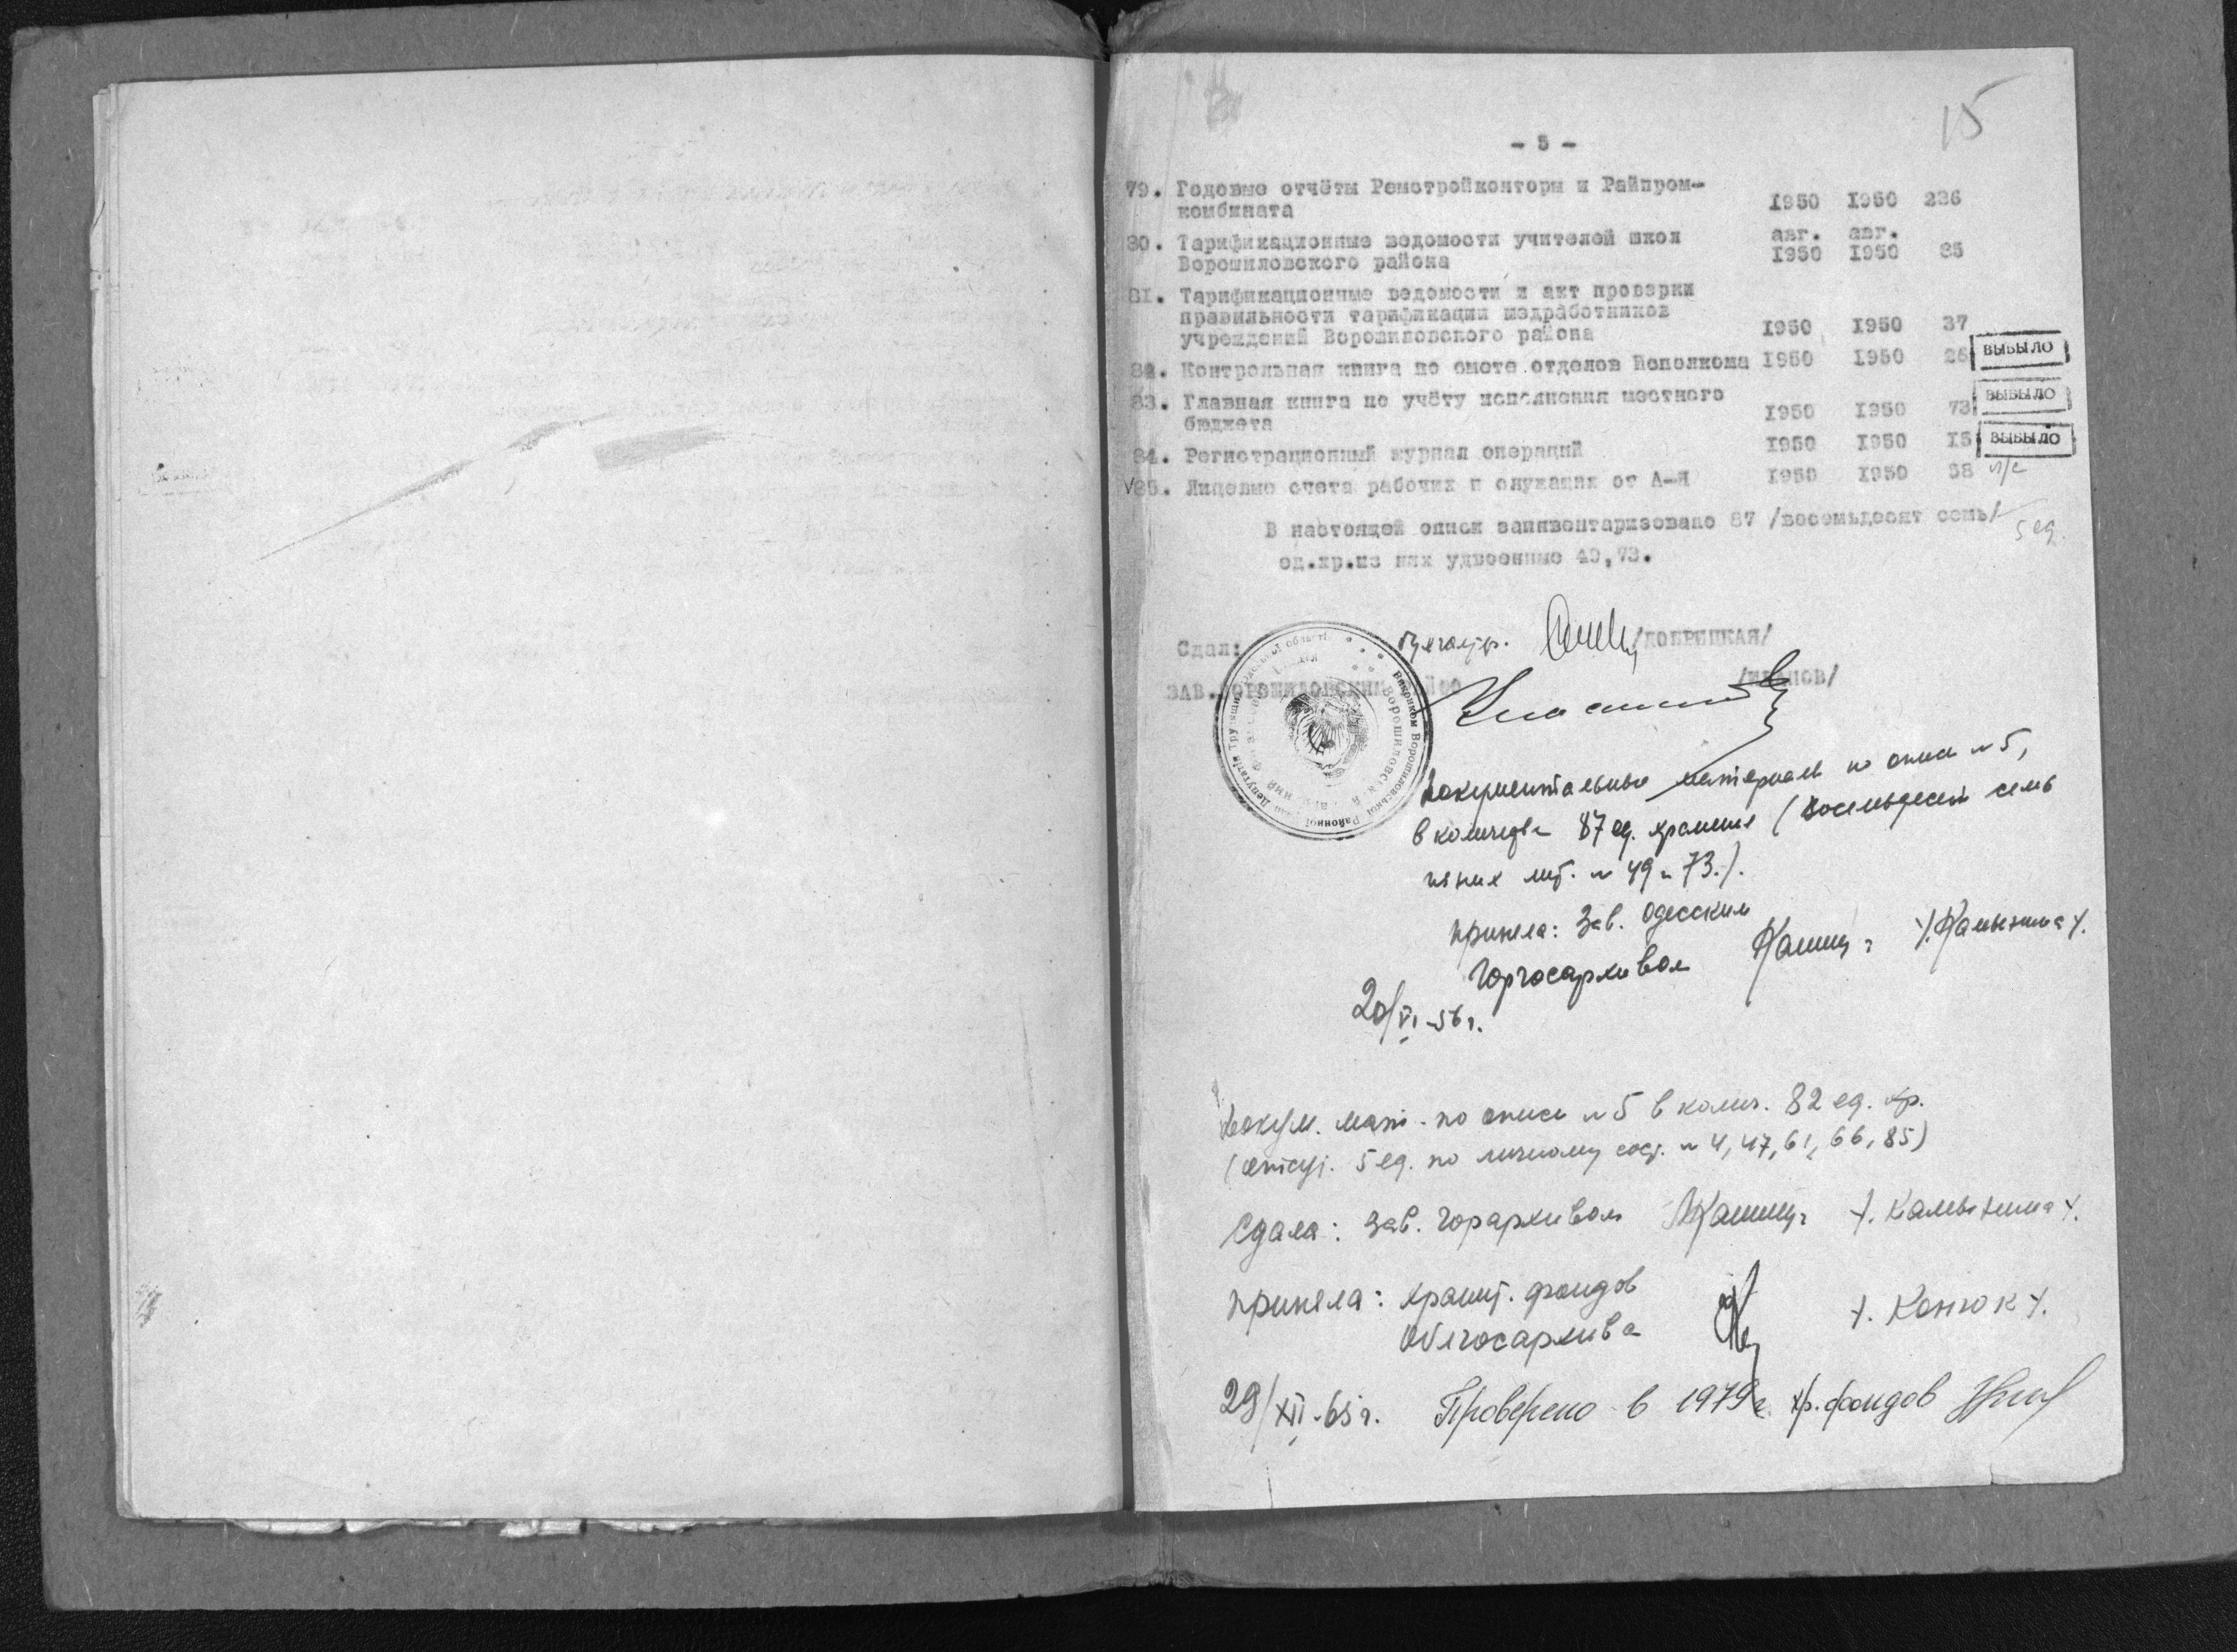 15
- 5 -
79. Годовые отчёты Ремстройконторы и Райпром-
комбината 1950 1950 236
80. Тарификационные ведомости учителей школ авг. авг.
Ворошиловского района 1950 1950 85
81. Тарификационные ведомости и акт проверки
правильности тарификации медработников
учреждений Ворошиловского района 1950 1950 37
82. Контрольная книга по смете отделов Исполкома 1950 1950 26 ВЫБЫЛО
83. Главная книга по учёту исполнения местного
бюджета 1950 1950 73 ВЫБЫЛО
84. Регистрационный журнал операций 1950 1950 15 ВЫБЫЛО
√85. Лицевые счета рабочих и служащих от А-Я 1950 1950 38 л/с
В настоящей описи заинвентаризовано 87 /восемьдесят семь/
5 ед.
ед.хр.из них удвоенные 49,73.
Сдал: Бухгалтер. /ДОБРИЦКАЯ/
ЗАВ. ВОРОШИЛОВСКИМ РАЙФО
Викриком Ворошиловської Районної Ради Депутатів Трудящих
Документальные материалы по описи №5,
в количестве 87 ед. хранения (восемьдесят семь
из них лит. № 49 и 73.).
Приняла: Зав. Одесским
Горгосархивом /.Камынина/.
20/VI-56 г.
Докум. мат. по описи №5 в колич. 82 ед. хр.
(отсут. 5 ед. по личному сост. № 4, 47, 61, 66, 85)
Сдала: Зав. Горархивом /.Камынина/.
Приняла: хранит. фондов
Облгосархива /.Конюк/.
29/XII-63 г. Проверено в 1979 г. хр. фондов